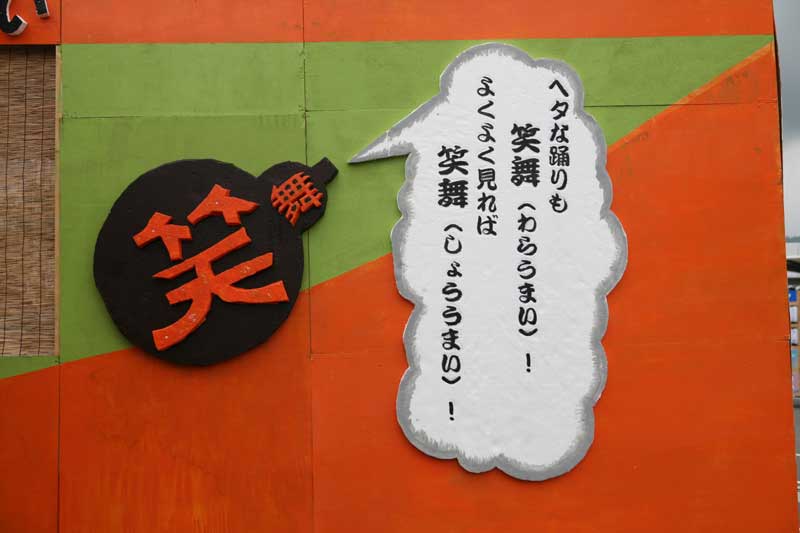 い
笑
舞
ヘタな踊りも
笑舞（わらうまい）！
よくよく見れば
笑舞（しょううまい）！